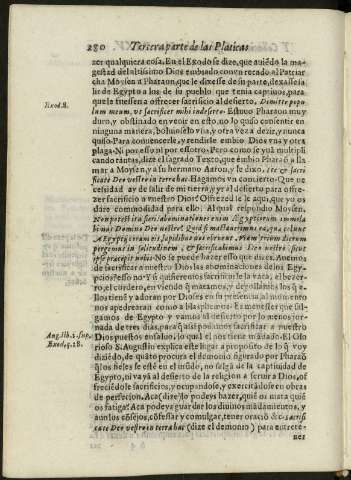 280 Tercera parte de las Platicas
zer qualquiera cosa. En el Exodo se dize, que auiẽdo la ma-
gestad del altissimo Dios embiado con vn recado, al Patriar
cha Moysen a Pharaon, que le dixesse de su parte, dexasse sa
lir de Egypto a los de su pueblo que tenia captiuos, para
Exod. 8.
que le fuessen a offrecer sacrificio al desierto, Dimitte popu
lum meum, vt sacrificet mihi in deserto. Estuuo Pharaon muy
duro, y obstinado en venir en esto, no lo quiso consentir en
ninguna manera, boluioselo vna, y otra vez a dezir, y nunca
quiso. Para conuencerle, y rendirle embio Dios vna y otra
plaga. Ni por esso ni por essotro. Pero como se yuã multipli
cando tantas, dize el sagrado Texto, que embio Pharaõ a lla
mar a Moysen, y a su hermano Aaron, y le dixo, Ite & sacri
ficate Deo vestro in terra hac. Hagamos vn concierto. Que ne
cessidad ay de salir de mi tierra, y yr al desierto para offre-
zer sacrificio a vuestro Dios? Offrezedle aqui, que yo os
dare commodidad para ello. Al qual respondio Moysen.
Non potest ita fieri: abominationes enim Ægyptiorum immola
bimus Domino Deo nostro? Quod si mactauerimus ea, quæ colunt
Ægyptij coram eis, lapidibus nos obruent. Viam trium dierum
pergemus in solitudinem, & sacrificabimus Deo nostro, sicut
ipse præcepit nobis. No se puede hazer esso que dizes. Auemos
de sacrificar a nuestro Dios las abominaciones de los Egy
pcios? esso no. Y si quisieremos sacrificarle la vaca, el bezer-
ro, el cordero, en viendo q̃ matamos, y degollamos los q̃ e-
llos tienẽ y adoran por Dioses en su presencia, al momento
nos apedrearan como a blasphemos. Es menester que sal-
gamos de Egypto y vamos al desierto por lo menos jor-
nada de tres dias, para que assi podamos sacrificar a nuestro
Aug. lib. 2. sup.
Exod. q. 28.
Dios puestos en saluo, lo qual el nos tiene mãdado. El Glo
rioso S. Augustin explica este lugar a proposito de lo q̃ voy
diziendo, de quãto procura el demonio figurado por Pharaõ
q̃ los fieles se estẽ en el mũdo, no salgã de la captiuidad de
Egypto, ni vayã al desierto de la religion a seruir a Dios, of
freciẽdole sacrificios, y ocupandose, y exercitãdose en obras
de perfecion. Aca (dize) lo podeys hazer, què os mata que
os fatiga? Aca podeys guardar los diuinos mãdamientos, y
aun los cõsejos, cõfessar y comulgar, tener oraciõ & c. sacrifi-
cate Deo vestro in terra hac (dize el demonio) para entrete-
ner